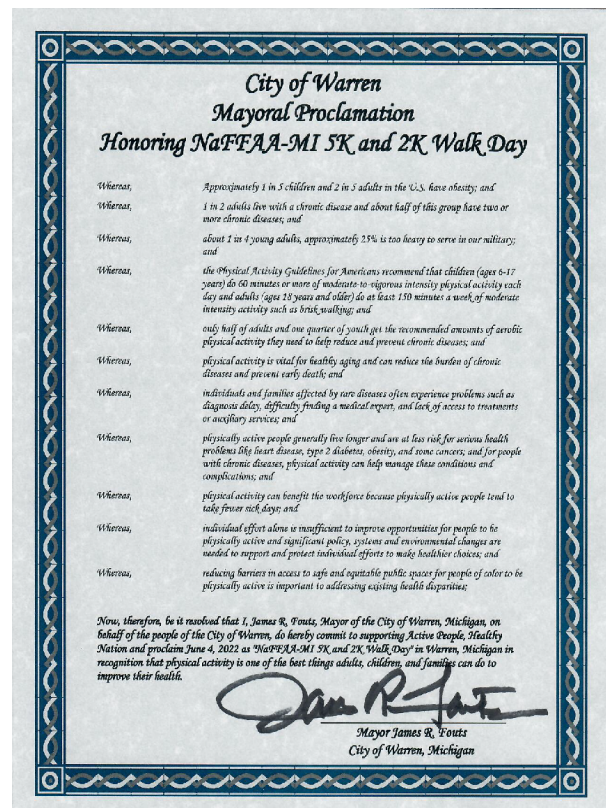 City of Warren
Mayoral Proclamation
Honoring NaFFAA-MI 5K and 2K Walk Day
Whereas, Approximately 1 in 5 children and 2 in 5 adults in the U.S. have obesity; and
Whereas, 1 in 2 adults live with a chronic disease and about half of this group have two or
more chronic diseases; and
Whereas, about 1 in 4 young adults, approximately 25% is too heavy to serve in our military;
and
Whereas, the Physical Activity Guidelines for Americans recommend that children (ages 6-17
years) do 60 minutes or more of moderate-to-vigorous intensity physical activity each
day and adults (ages 18 years and older) do at least 150 minutes a week of moderate
intensity activity such as brisk walking; and
Whereas, only half of adults and one quarter of youth get the recommended amounts of aerobic
physical activity they need to help reduce and prevent chronic diseases; and
Whereas, physical activity is vital for healthy aging and can reduce the burden of chronic
diseases and prevent early death; and
Whereas, individuals and families affected by rare diseases often experience problems such as
diagnosis delay, difficulty finding a medical expert, and lack of access to treatments
or auxiliary services; and
Whereas, physically active people generally live longer and are at less risk for serious health
problems like heart disease, type 2 diabetes, obesity, and some cancers; and for people
with chronic diseases, physical activity can help manage these conditions and
complications; and
Whereas, physical activity can benefit the workforce because physically active people tend to
take fewer sick days; and
Whereas, individual effort alone is insufficient to improve opportunities for people to be
physically active and significant policy, systems and environmental changes are
needed to support and protect individual efforts to make healthier choices; and
Whereas, reducing barriers in access to safe and equitable public spaces for people of color to be
physically active is important to addressing existing health disparities;
Now, therefore, be it resolved that I, James R. Fouts, Mayor of the City of Warren, Michigan, on
behalf of the people of the City of Warren, do hereby commit to supporting Active People, Healthy
Nation and proclaim June 4, 2022 as "NaFFAA-MI 5K and 2K Walk Day" in Warren, Michigan in
recognition that physical activity is one of the best things adults, children, and families can do to
improve their health.
James R. Fouts
Mayor James R. Fouts
City of Warren, Michigan